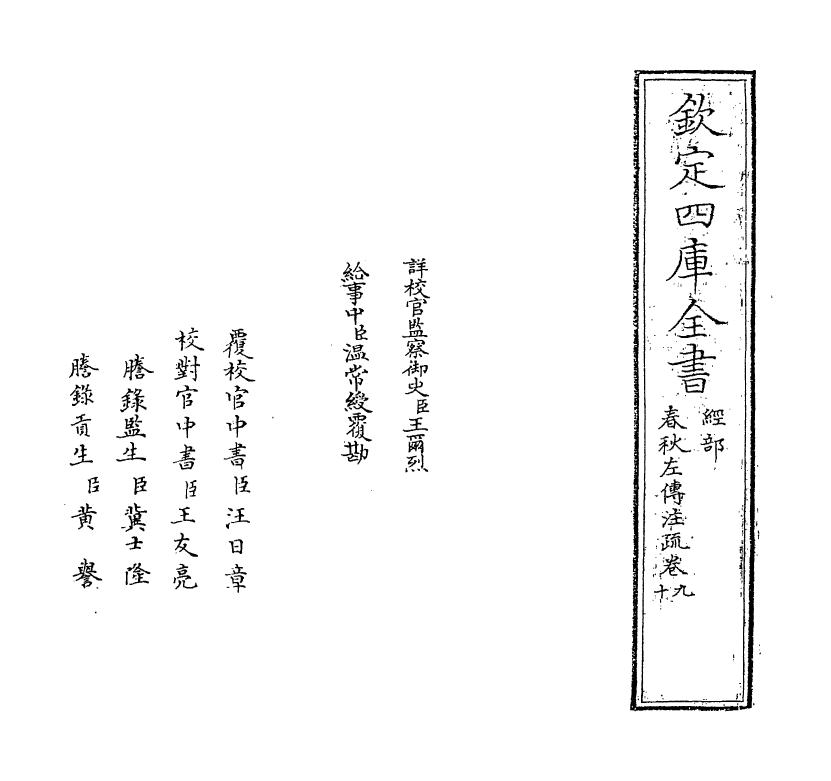 欽定四庫全書
經部
春秋左傳注疏卷九
十
詳校官監察御史臣王爾烈
給事中臣温常綬覆勘
覆校官中書臣汪日章
校對官中書臣王友亮
謄錄監生臣冀士隆
謄錄貢生臣黄譽